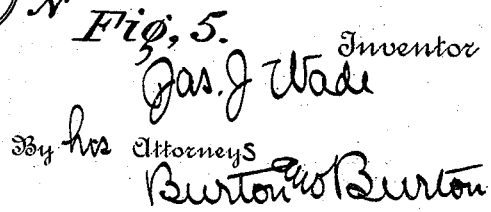 N
Fig, 5.
Inventor
Jas. J Wade
By his Attorneys
Burton and Burton